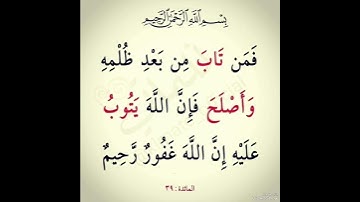 بِسْمِ اللَّهِ الرَّحْمَٰنِ الرَّحِيمِ
فَمَن تَابَ مِن بَعْدِ ظُلْمِهِ
وَأَصْلَحَ فَإِنَّ اللَّهَ يَتُوبُ
عَلَيْهِ إِنَّ اللَّهَ غَفُورٌ رَّحِيمٌ
المائدة : ٣٩